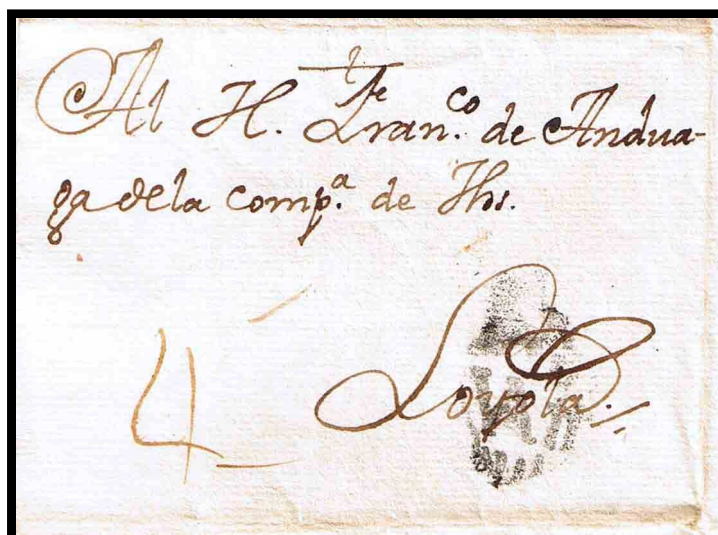 Al H. Fran.co de Andua-
ga de la comp.a de Jhs.
4
Loyola.